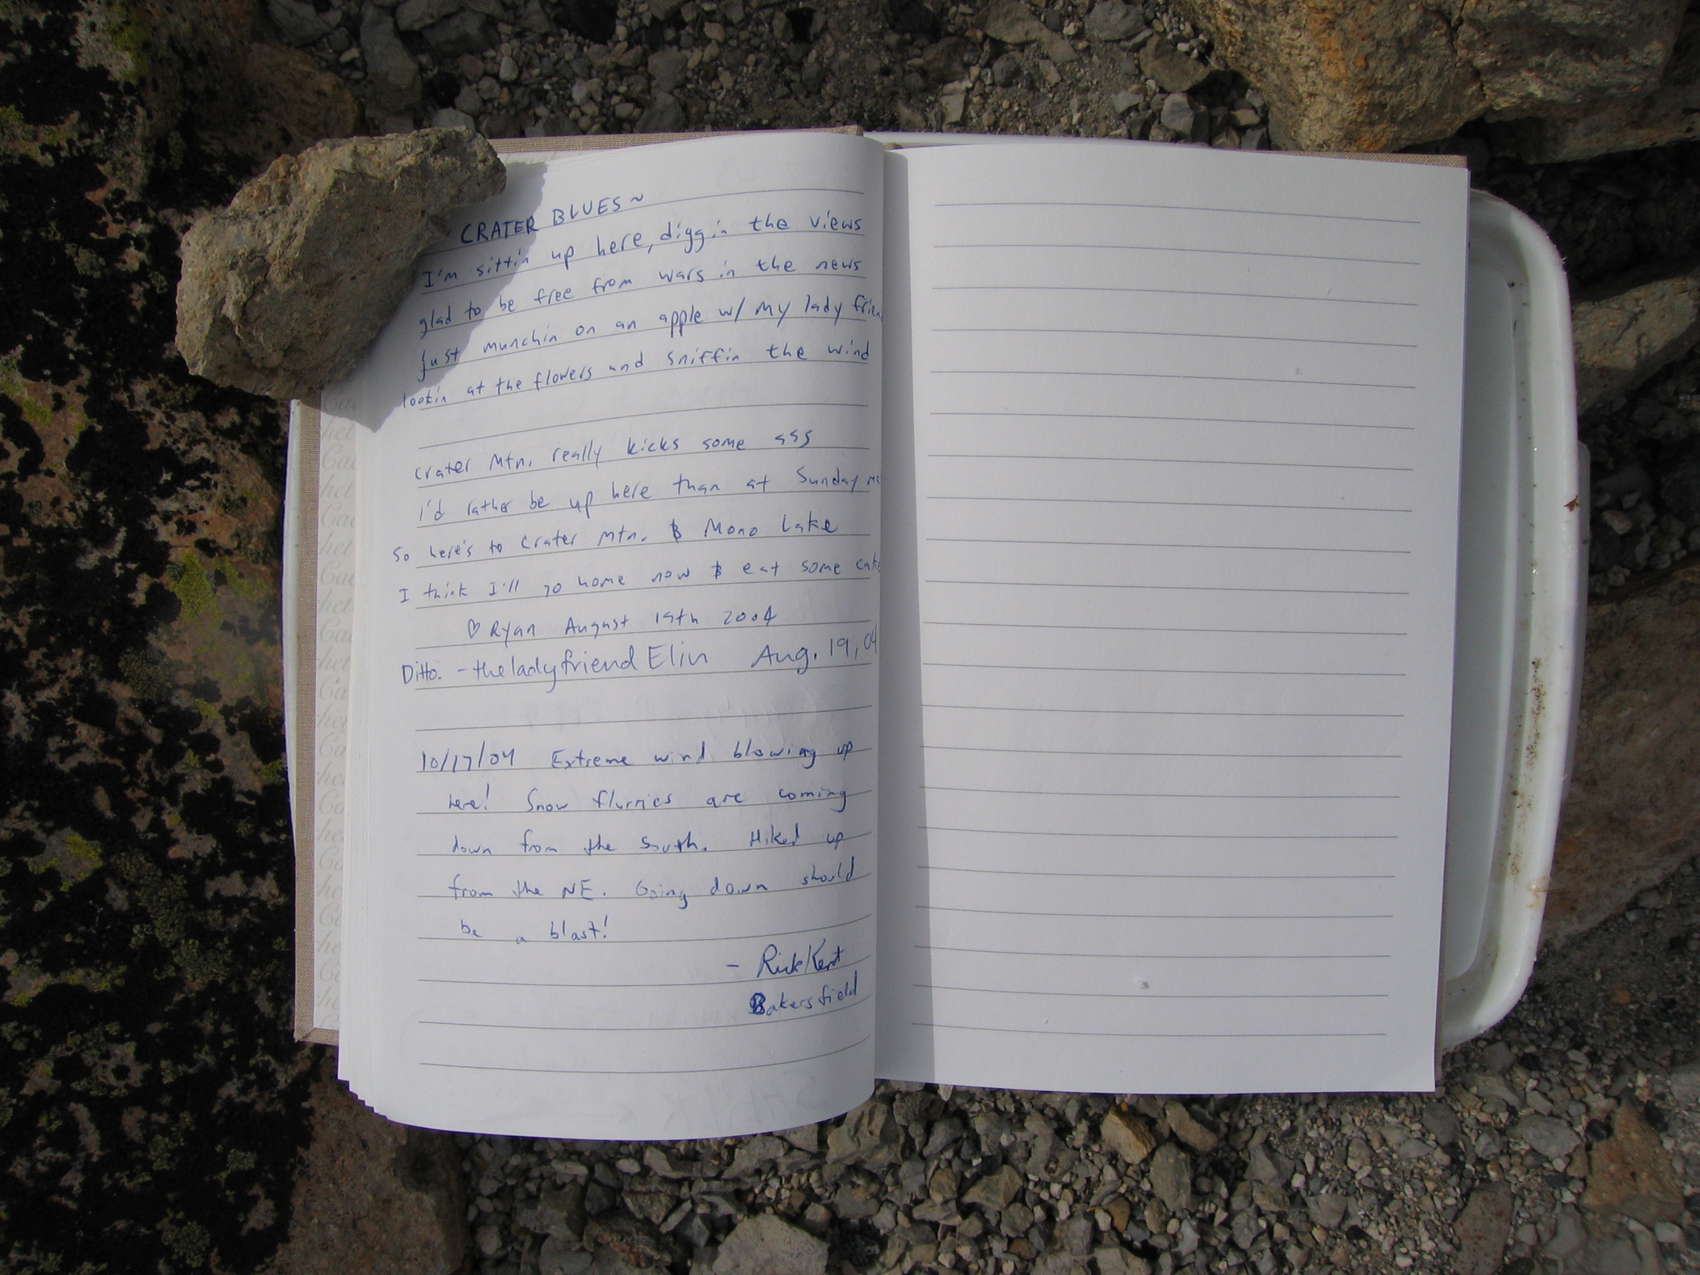 CRATER BLUES ~
I'm sittin up here, diggin the views
glad to be free from wars in the news
just munchin on an apple w/ my lady frien
lookin at the flowers and sniffin the wind
Crater Mtn. really kicks some ass
I'd rather be up here than at Sunday
So here's to Crater Mtn. & Mono Lake
I think I'll go home now & eat some cake
♡ Ryan August 19th 2004
Ditto. - the lady friend Elin Aug. 19, 04
10/17/04 Extreme wind blowing up
here! Snow flurries are coming
down from the South. Hiked up
from the NE. Going down should
be a blast!
- Rick Kent
Bakersfield